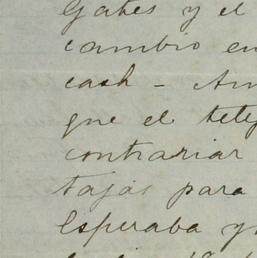 Gates y el
cambio en
cash -
que el
contrariar
tajas para
Esperaba